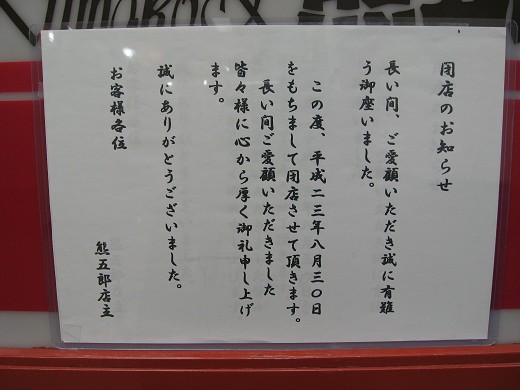 閉店のお知らせ
長い間、ご愛顧いただき誠に有難
う御座いました。
この度、平成二三年八月三〇日
をもちまして閉店させて頂きます。
長い間ご愛顧いただきました
皆々様に心から厚く御礼申し上げ
ます。
誠にありがとうございました。
お客様各位
熊五郎店主